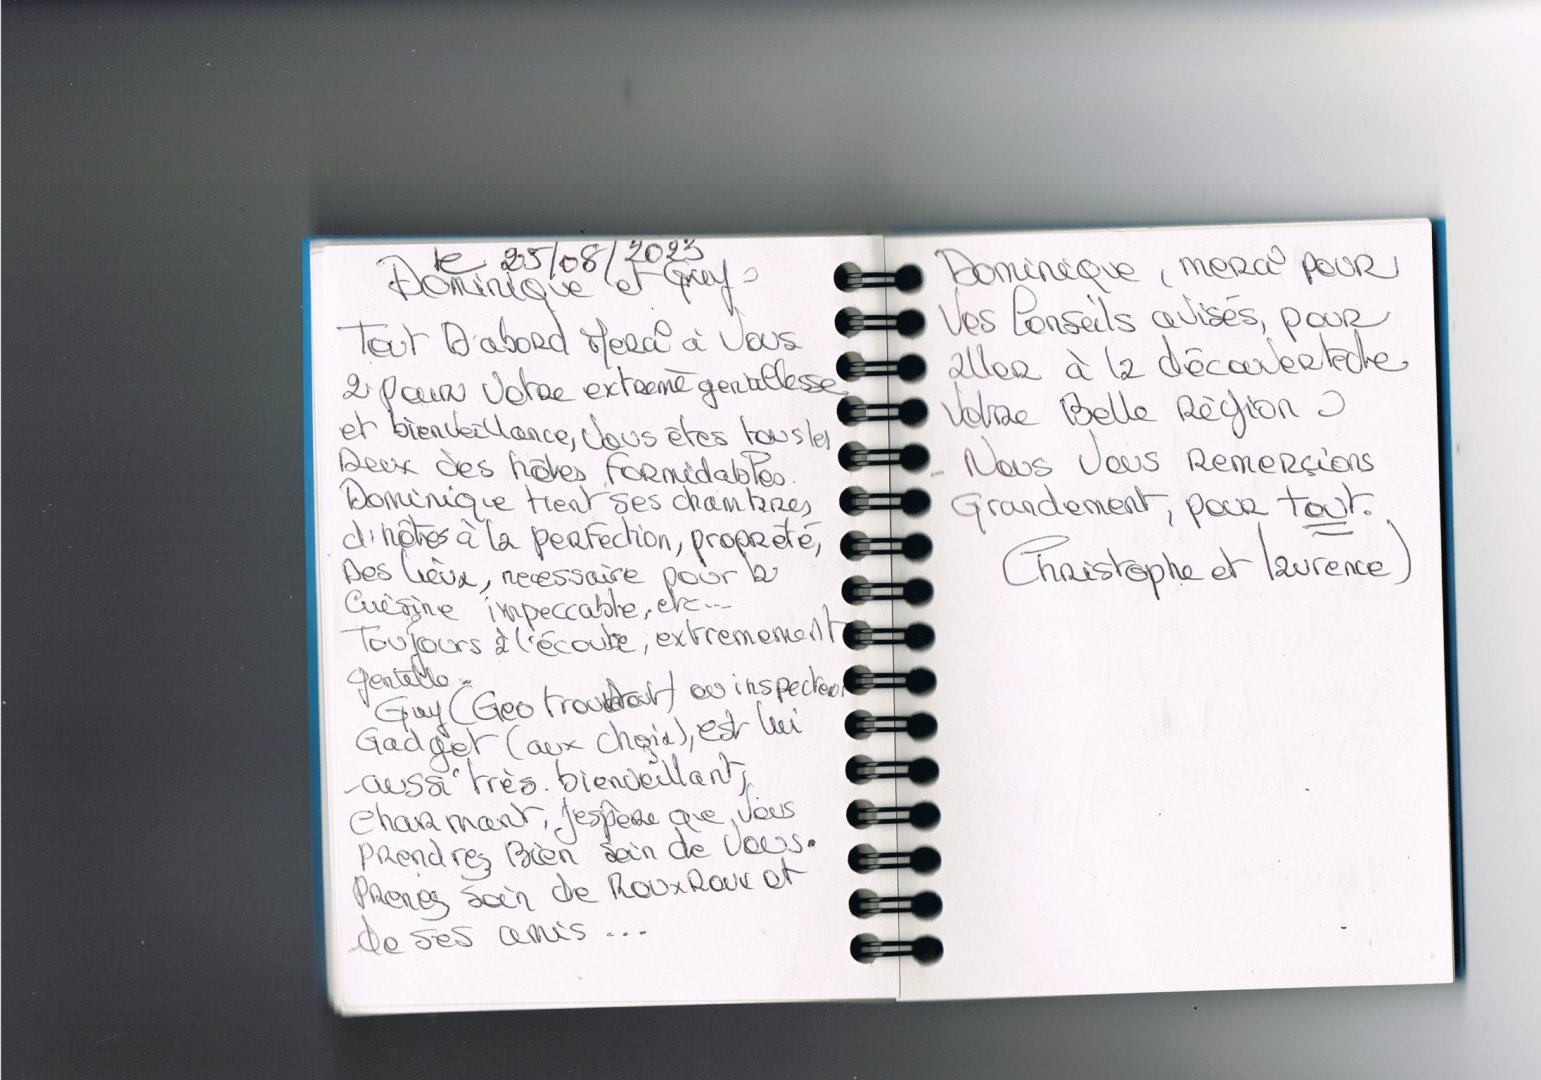 le 25/08/2023
Dominique et Guy
Tout D'abord Merci à Vous
2 pour votre extreme gentillesse
et bienveillance, Vous êtes tous les
Deux des hôtes formidables.
Dominique tient ses chambres
d'hôtes à la perfection, propreté,
Des lieux, necessaire pour la
Cuisine impeccable, etc...
Toujours à l'écoute, extremement
gentille.
Guy (Geo trouvetout) ou inspecteur
Gadget (aux choix), est lui
aussi très bienveillant,
charmant, j'espère que vous
prendrez Bien soin de Vous.
Prenez soin de RouxRoux et
de ses amis ...
Dominique, merci pour
Vos Conseils avisés, pour
aller à la découverte de
Votre Belle Région
- Nous Vous Remerçions
Grandement, pour tout.
Christophe et laurence)